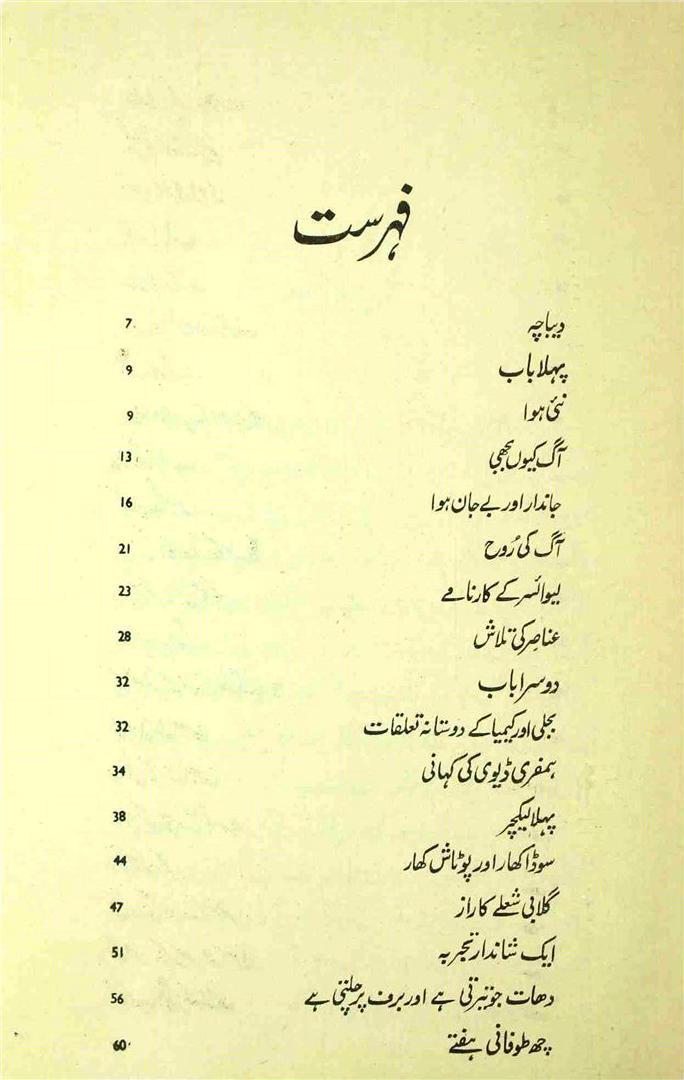 فہرست
دیباچہ 7
پہلا باب 9
نئی ہوا 9
آگ کیوں بجھی 13
جاندار اور بے جان ہوا 16
آگ کی رُوح 21
لیوائسر کے کارنامے 23
عناصر کی تلاش 28
دوسرا باب 32
بجلی اور کیمیا کے دوستانہ تعلقات 32
ہمفری ڈیوی کی کہانی 34
پہلا لیکچر 38
سوڈا کھار اور پوٹاش کھار 44
گلابی شعلے کا راز 47
ایک شاندار تجربہ 51
دھات جو تیرتی ہے اور برف پر جلتی ہے 56
چھ طوفانی ہفتے 60